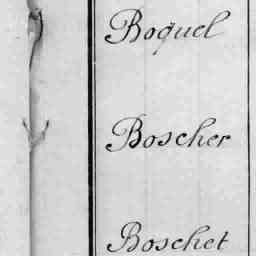 Boquel
Boscher
Boschet